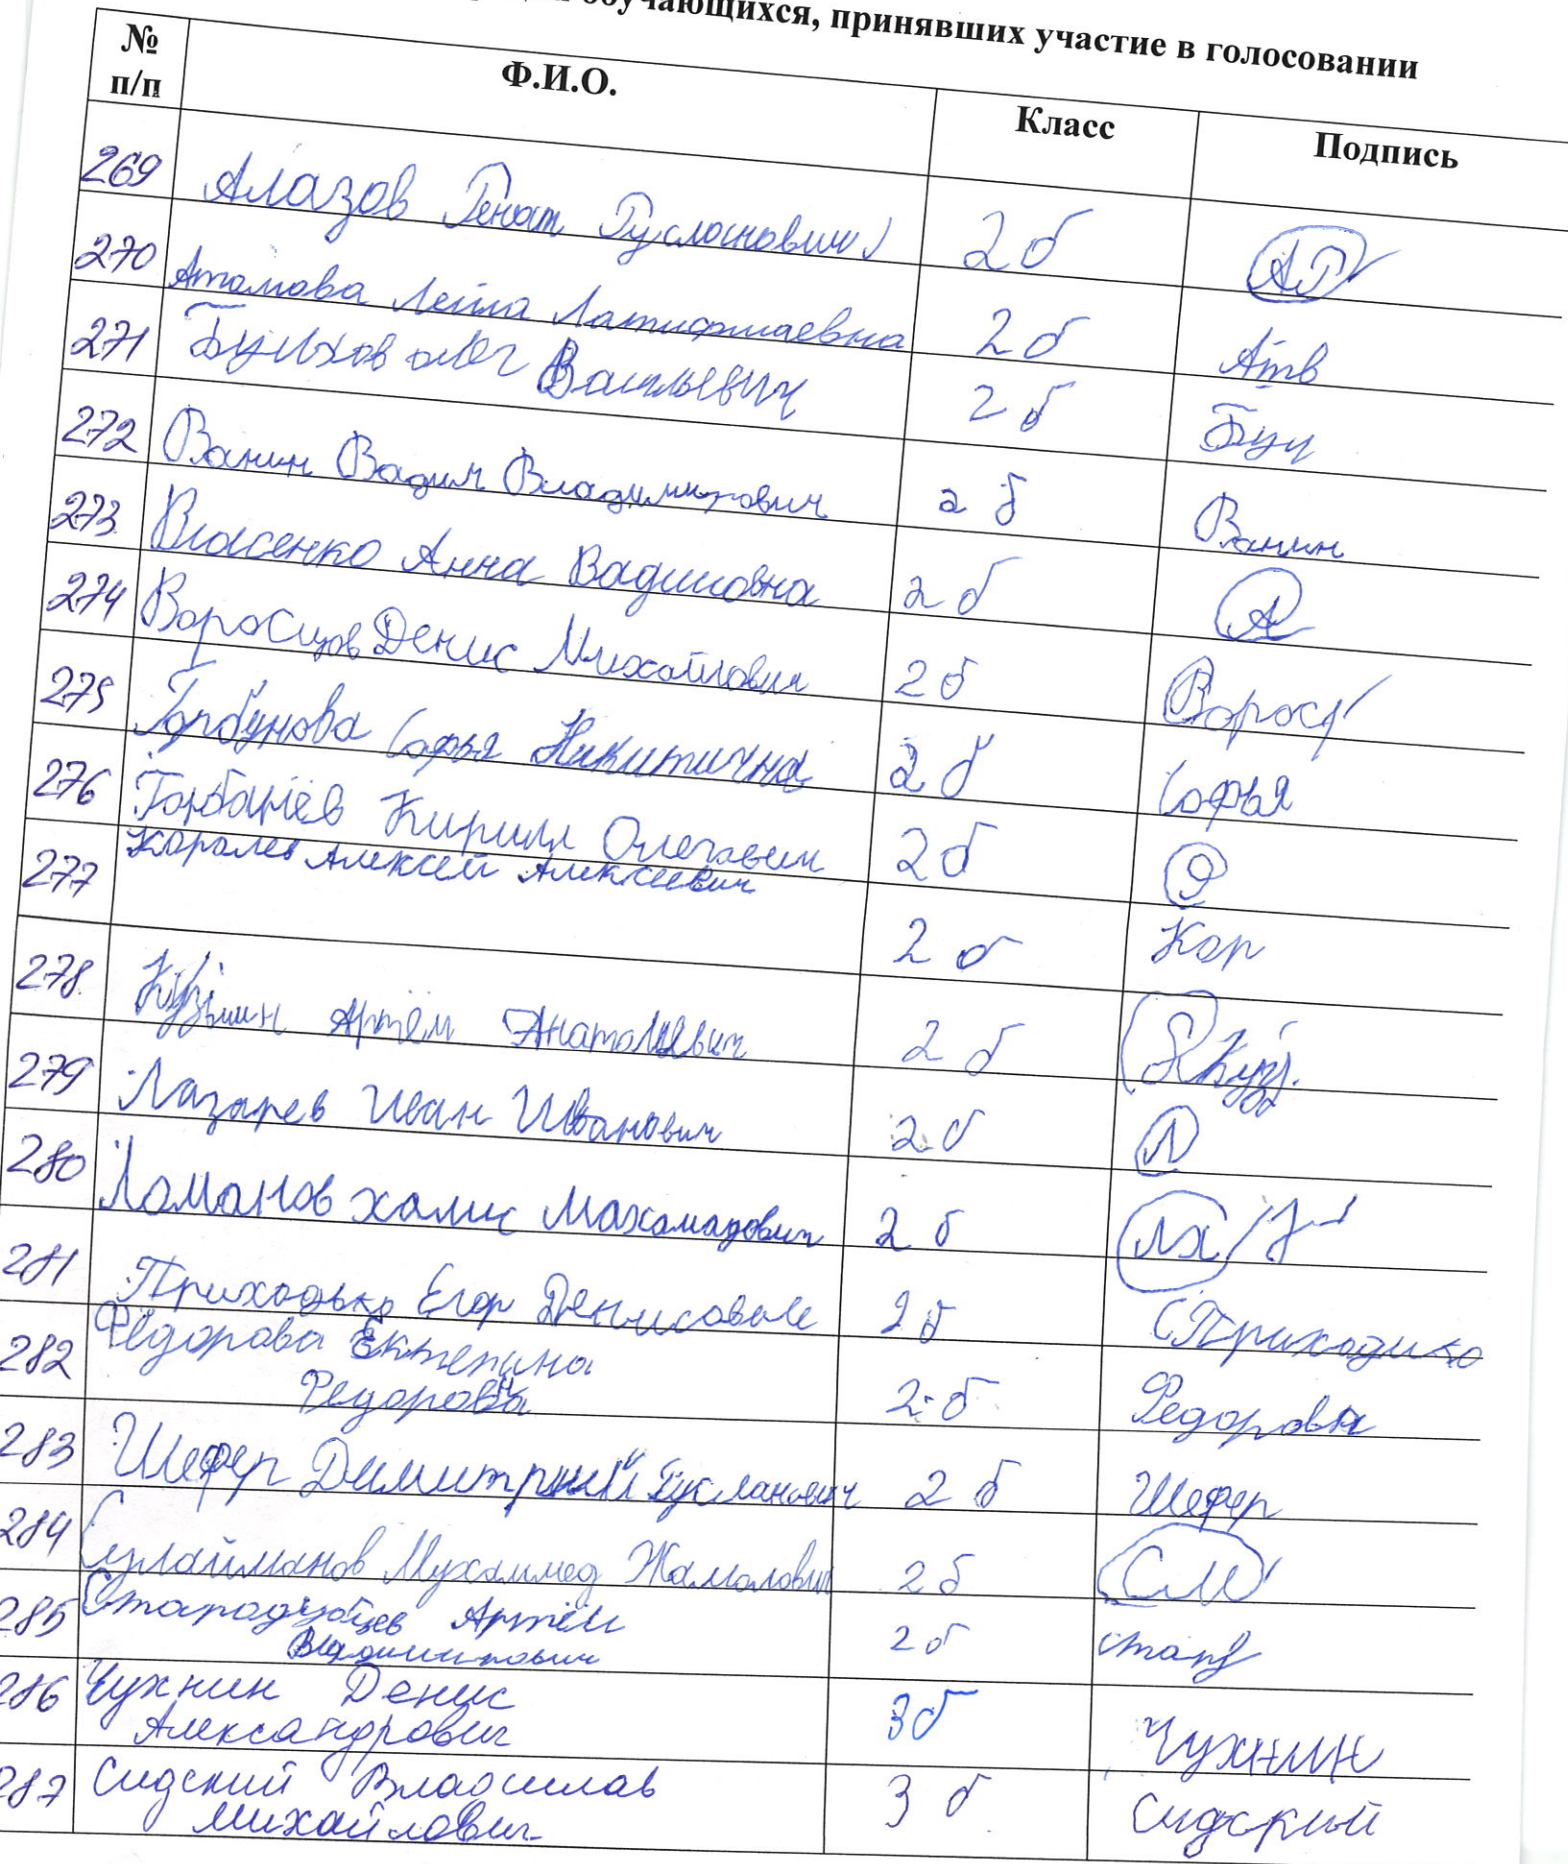 обучающихся, принявших участие в голосовании
№ п/п Ф.И.О. Класс Подпись
269 Алазов Ренат Русланович 2б АР
270 Атамова Лейла 2б Атв
271 Булхов олег Васильевич 2б Бул
272 Ванин Вадим Владимирович 2б Ванин
273 Власенко Анна Вадимовна 2б А
274 Воросцов Денис Михайлович 2бВоросц
275 Горбунова Софья Никитична 2б Софья
276 Горбачёв Кирилл Олегович 2б
277 Королев Алексей Алексеевич 2б Кор
278 Кузьмин Артём Анатольевич 2б Куз.
279 Лазарев Иван Иванович 2б Л
280 Ломанов халис Махамадович 2б ЛХ
281 Приходько Егор Денисович 2б Приходико
282 Фёдорова Ектерина 2б Федоровн
Федоровна
283 Шефер Димитрий Русланович 2б Шефер
284 Сулайманов Мухаммед Жамалович 2б СМ
285 Стародубцев Артём 2б стару
286 Чухнин Денис 3б Чухнин
Александрович
287 Сидский Владислав 3б Сидский
михайлович